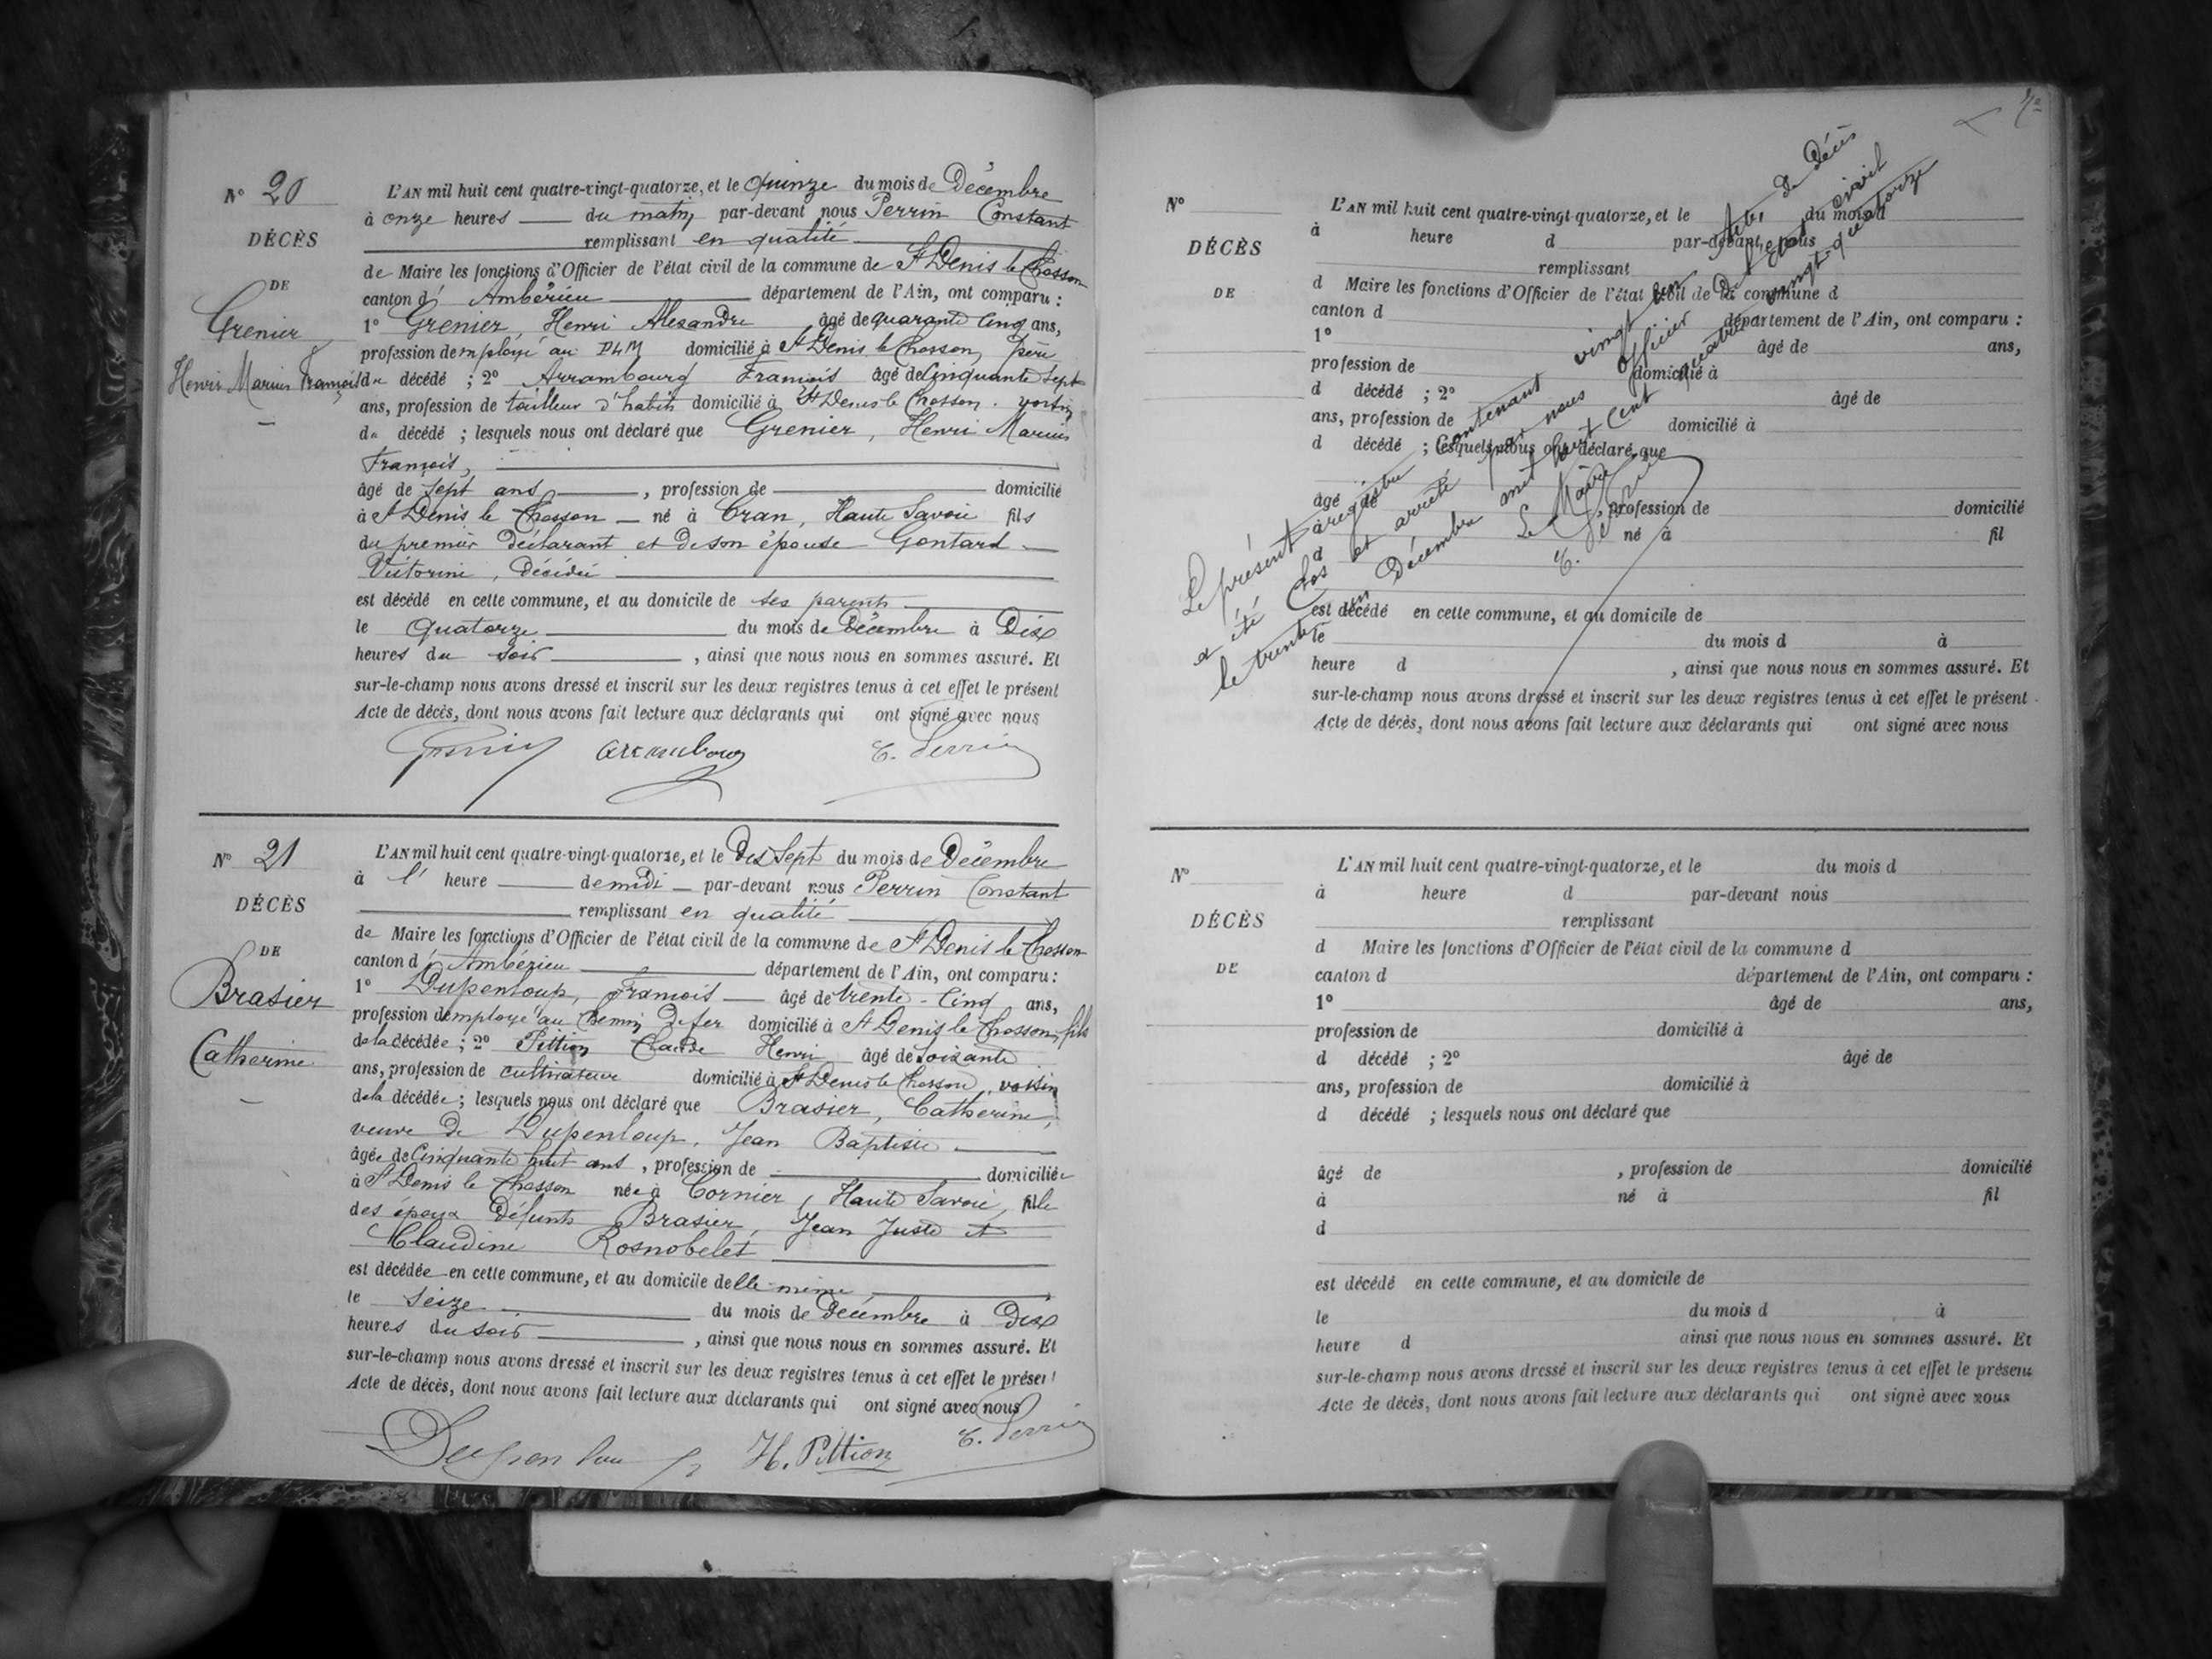 Nº 20
DÉCÈS
DE
Grenier
Henri Marius François
L'AN mil huit cent quatre-vingt-quatorze, et le quinze du mois de Décembre
à onze heures du matin par-devant nous Perrin Constant
remplissant en qualité
de Maire les fonctions d'Officier de l'état civil de la commune de St Denis le Chosson
canton d'Ambérieu département de l'Ain, ont comparu :
1º Grenier, Henri Alexandre âgé de quarante cinq ans,
profession d'employé au PLM domicilié à St Denis le Chosson, père
du décédé ; 2º Arrambourg François âgé de Cinquante sept
ans, profession de tailleur d'habits domicilié à St Denis le Chosson. voisin
du décédé ; lesquels nous ont déclaré que Grenier, Henri Marius
François,
âgé de sept ans, profession de domicilié
à St Denis le Chosson né à Cran, Haute Savoie fils
du premier déclarant et de son épouse Gontard
Victorine, décédée
est décédé en cette commune, et au domicile de ses parents
le quatorze du mois de Décembre à Dix
heures du soir, ainsi que nous nous en sommes assuré. Et
sur-le-champ nous avons dressé et inscrit sur les deux registres tenus à cet effet le présent
Acte de décès, dont nous avons fait lecture aux déclarants qui ont signé avec nous
C. Perrin
Nº 21
DÉCÈS
DE
Brasier
Catherine
L'AN mil huit cent quatre-vingt-quatorze, et le Dix Sept du mois de Décembre
à l' heure de midi par-devant nous Perrin Constant
remplissant en qualité
de Maire les fonctions d'Officier de l'état civil de la commune de St Denis le Chosson
canton d'Ambérieu département de l'Ain, ont comparu :
1º Dupenloup, François âgé de trente-Cinq ans,
profession d'employé au Chemin de fer domicilié à St Denis le Chosson, fils
de la décédée ; 2º Pittion Claude Henri âgé de soixante
ans, profession de cultivateur domicilié à St Denis le Chosson, voisin
de la décédée ; lesquels nous ont déclaré que Brasier, Catherine,
veuve de Dupenloup, Jean Baptiste
âgée de Cinquante huit ans, profession de domiciliée
à St Denis le Chosson née à Cornier, Haute Savoie, fille
des époux défunts Brasier, Jean Juste et
Claudine Rosnobelet
est décédée en cette commune, et au domicile d'elle même,
le Seize du mois de Décembre à Dix
heures du soir, ainsi que nous nous en sommes assuré. Et
sur-le-champ nous avons dressé et inscrit sur les deux registres tenus à cet effet le présent
Acte de décès, dont nous avons fait lecture aux déclarants qui ont signé avec nous
H. Pittion C. Perrin
Nº
DÉCÈS
DE
L'AN mil huit cent quatre-vingt-quatorze, et le du mois d
à heure d par-devant nous
remplissant
d Maire les fonctions d'Officier de l'état civil de la commune d
canton d département de l'Ain, ont comparu :
1º âgé de ans,
profession de domicilié à
d décédé ; 2º âgé de
ans, profession de domicilié à
d décédé ; lesquels nous ont déclaré que
âgé de , profession de domicilié
à né à fil
d
est décédé en cette commune, et au domicile de
le du mois d à
heure d , ainsi que nous nous en sommes assuré. Et
sur-le-champ nous avons dressé et inscrit sur les deux registres tenus à cet effet le présent
Acte de décès, dont nous avons fait lecture aux déclarants qui ont signé avec nous
Le présent registre contenant vingt un actes de décès
a été clos et arrêté par nous officier de l'état civil
le trente un Décembre mil huit cent quatre vingt-quatorze
Le Maire
C. Perrin
Nº
DÉCÈS
DE
L'AN mil huit cent quatre-vingt-quatorze, et le du mois d
à heure d par-devant nous
remplissant
d Maire les fonctions d'Officier de l'état civil de la commune d
canton d département de l'Ain, ont comparu :
1º âgé de ans,
profession de domicilié à
d décédé ; 2º âgé de
ans, profession de domicilié à
d décédé ; lesquels nous ont déclaré que
âgé de , profession de domicilié
à né à fil
d
est décédé en cette commune, et au domicile de
le du mois d à
heure d ainsi que nous nous en sommes assuré. Et
sur-le-champ nous avons dressé et inscrit sur les deux registres tenus à cet effet le présent
Acte de décès, dont nous avons fait lecture aux déclarants qui ont signé avec nous